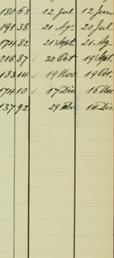 180 63 12 Jul. 12 Jun.
191 38 21 Ag. 20 Jul.
174 82 21 Sept. 21 Ag.
216 87 20 Oct 19 Sept.
183 14 19 Nov. 19 Oct.
174 10 17 Dec 16 Nov
137 92 29 Dec. 16 Dec.